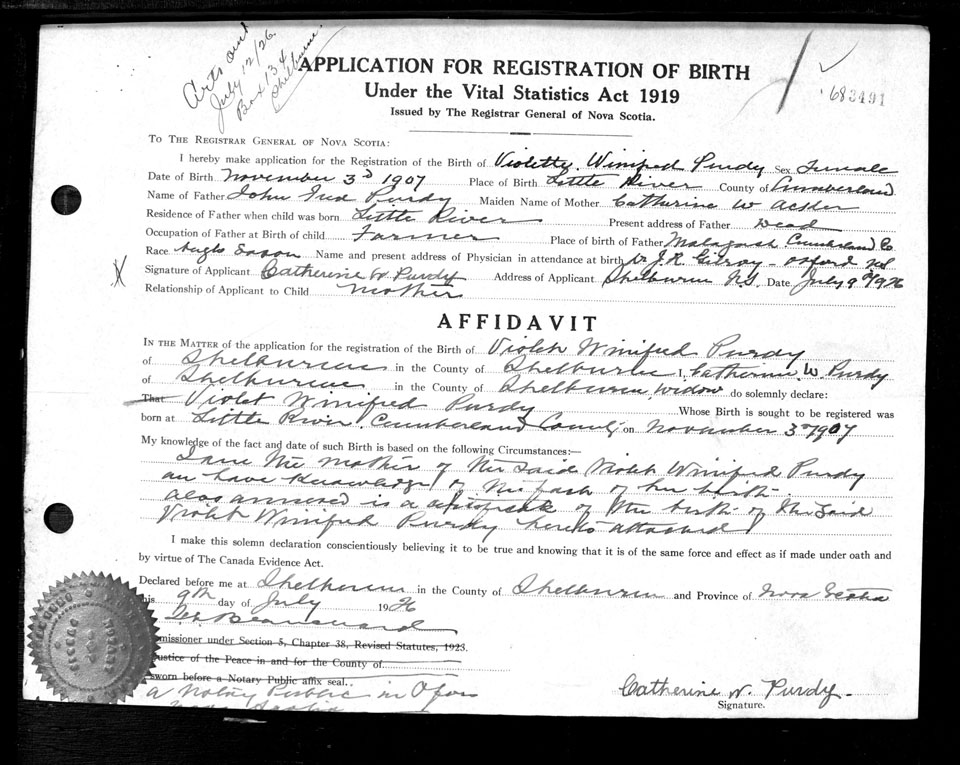 July 12/26.
Box 134
Shelburne
683491
APPLICATION FOR REGISTRATION OF BIRTH
Under the Vital Statistics Act 1919
Issued by The Registrar General of Nova Scotia.
TO THE REGISTRAR GENERAL OF NOVA SCOTIA:
I hereby make application for the Registration of the Birth of Winifred Purdy Sex Female
Date of Birth November 3d 1907 Place of Birth Little River County of Cumberland
Name of Father John Purdy Maiden Name of Mother Catherine W
Residence of Father when child was born Little River Present address of Father Dead
Occupation of Father at Birth of child Farmer Place of birth of Father Malagash Cumberland Co
Race Anglo Saxon Name and present address of Physician in attendance at birth Dr J.R. Gilroy - Oxford NS
Signature of Applicant Catherine W Purdy Address of Applicant Shelburne N.S. Date July 9th 1926
Relationship of Applicant to Child mother
AFFIDAVIT
IN THE MATTER of the application for the registration of the Birth of Violet Winifred Purdy
of Shelburne in the County of Shelburne I, Catherine W. Purdy
of Shelburne in the County of Shelburne, widow do solemnly declare:
That Violet Winifred Purdy Whose Birth is sought to be registered was
born at Little River Cumberland County on November 3rd 1907
My knowledge of the fact and date of such Birth is based on the following Circumstances:—
I am the mother of the said Violet Winifred Purdy
have knowledge of the of her birth.
also annexed is a of the birth of the said
Violet Winifred Purdy hereto attached
I make this solemn declaration conscientiously believing it to be true and knowing that it is of the same force and effect as if made under oath and
by virtue of The Canada Evidence Act.
Declared before me at Shelburne in the County of Shelburne and Province of Nova Scotia
this 9th day of July 1926
missioner under Section 5, Chapter 38, Revised Statutes, 1923.
Justice of the Peace in and for the County of
sworn before a Notary Public affix seal.
a Notary Public in
Nova Scotia
Catherine W. Purdy.
Signature.